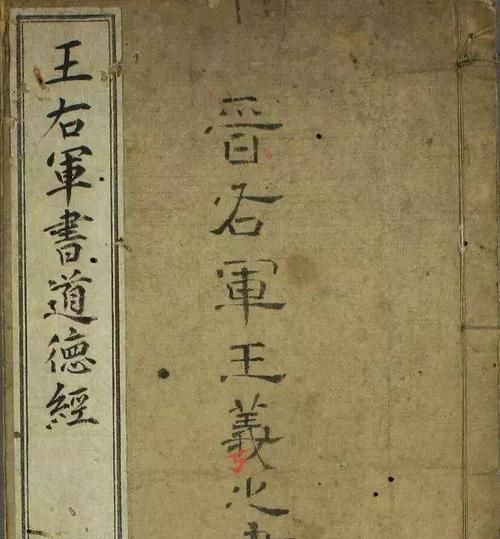 王右軍書道德經
晋右軍王義之